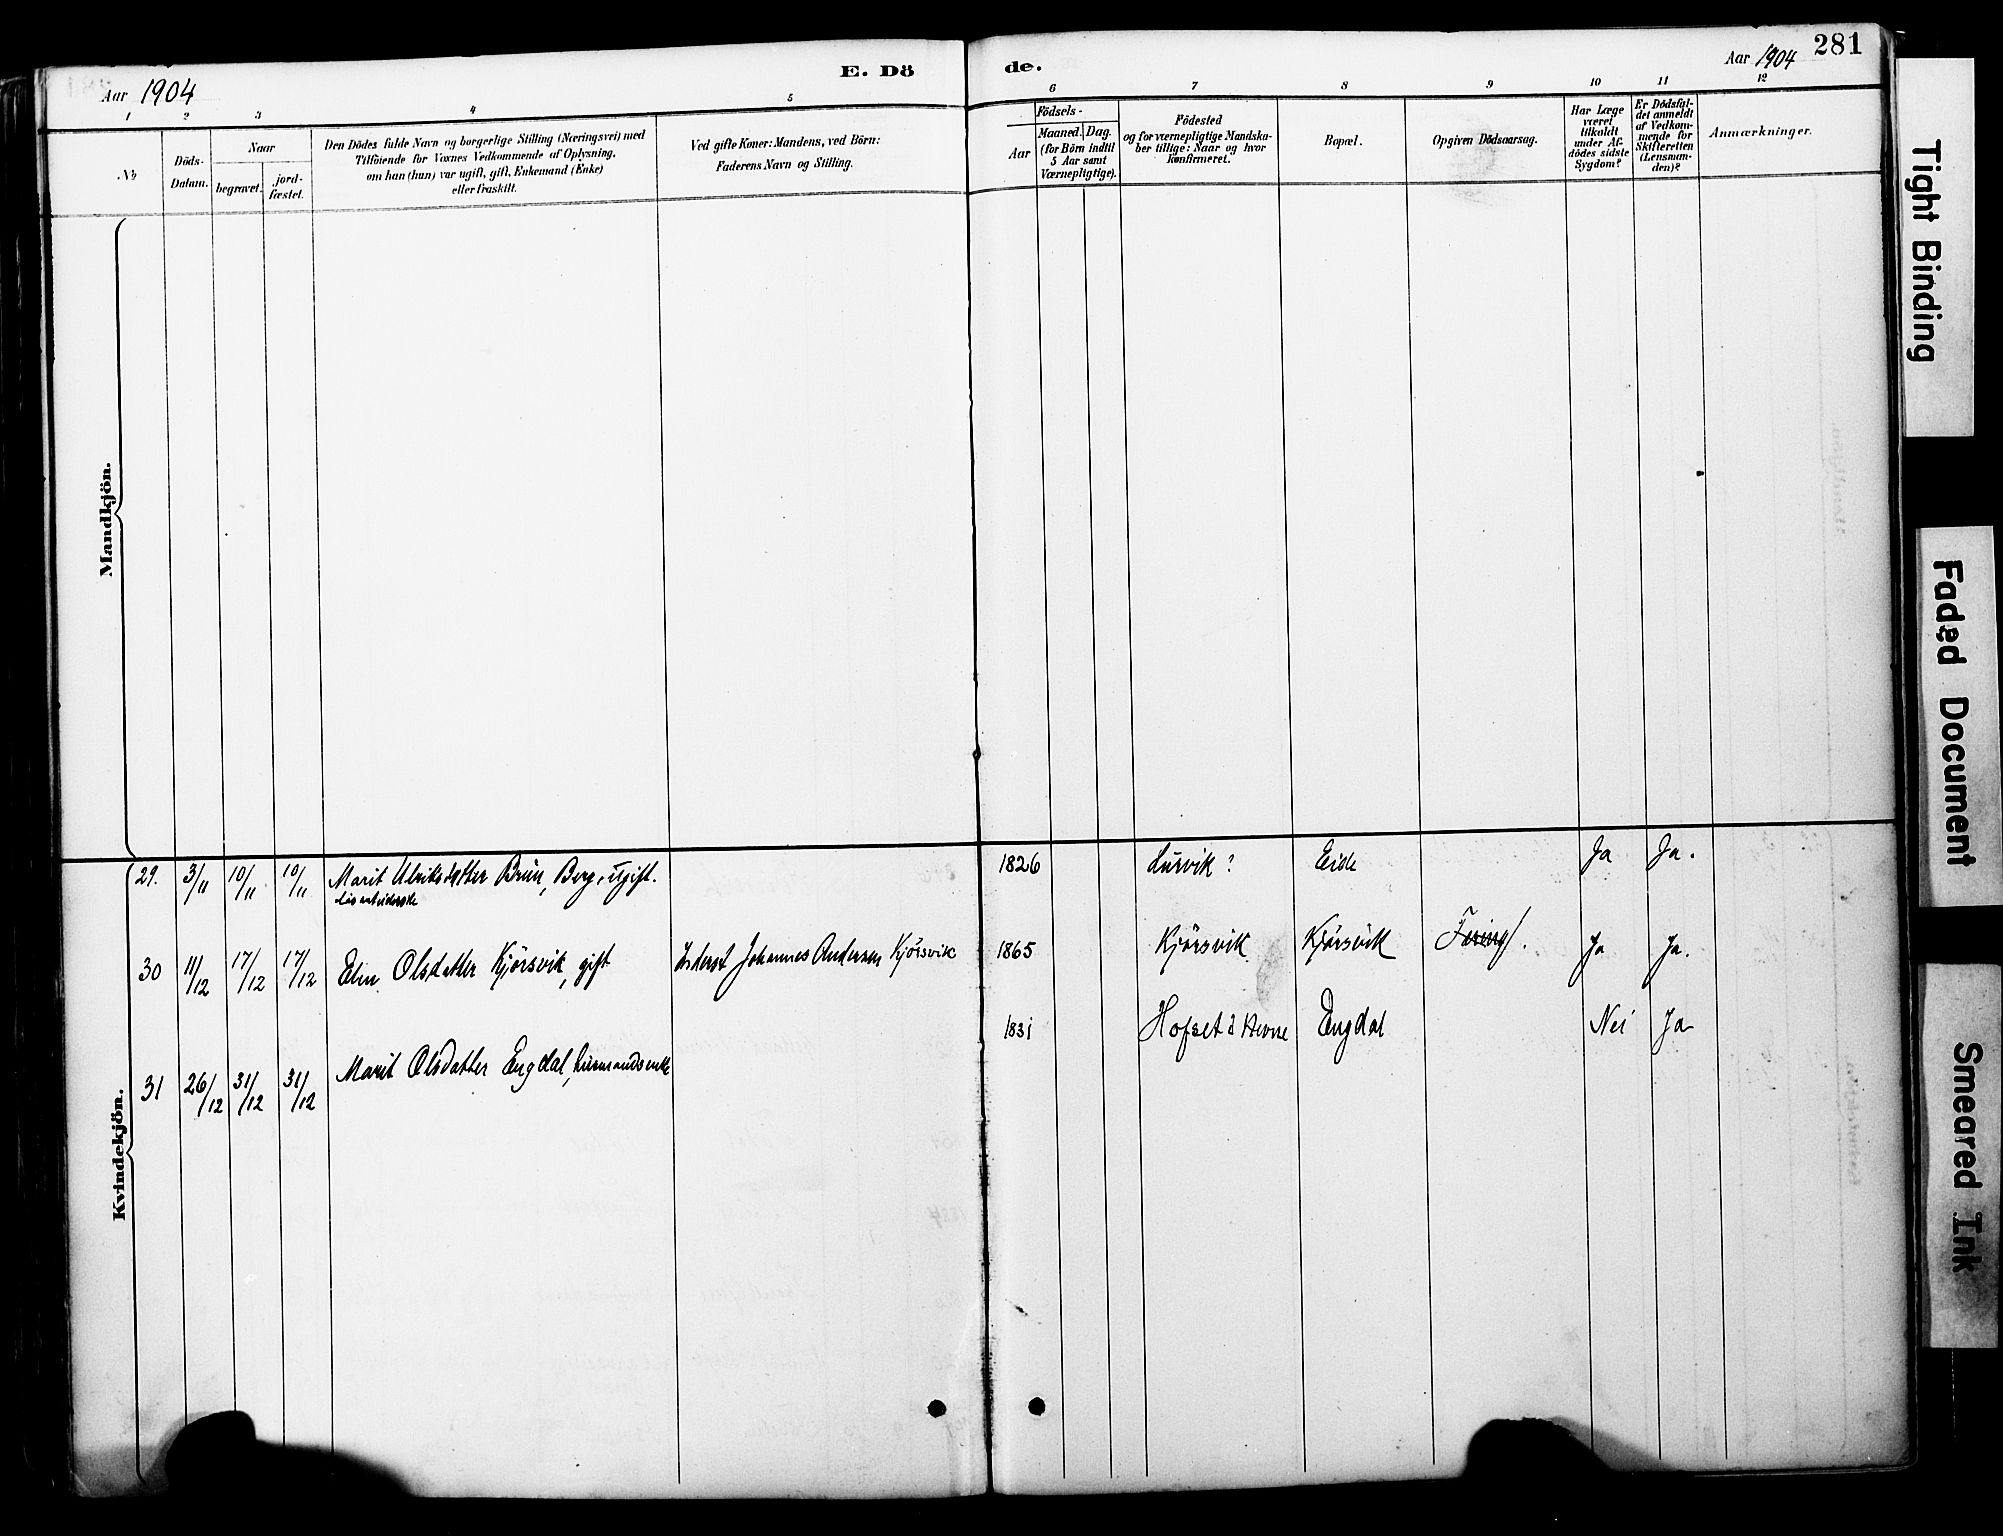 Aar 1904
E. Dö
de.
Aar 1904
281
1 2 3 4 5 6 7 8 9 10 11 12
No
Döds-
Datum.
Naar
begravet.
jord-
fæstet.
Den Dödes fulde Navn og borgerlige Stilling (Næringsvei) med
Tilföiende for Voxnes Vedkommende af Oplysning,
om han (hun) var ugift, gift, Enkemand (Enke)
eller fraskilt.
Ved gifte Koner: Mandens, ved Börn:
Faderens Navn og Stilling.
Födsels-
Aar
Maaned. Dag.
(for Börn indtil
5 Aar samt
Værnepligtige).
Födested
og for værnepligtige Mandska-
ber tillige: Naar og hvor
konfirmeret.
Bopæl.
Opgiven Dödsaarsag.
Har Læge
været
tilkaldt
under Af-
dödes sidste
Sygdom?
Er Dödsfal-
det anmeldt
af Vedkom-
mende for
Skifteretten
(Lensman-
den)?
Anmærkninger.
Mandkjön.
Kvindekjön.
29. 3/11 10/11 10/11 Marit Ulriksdatter Brün, Berg, ugift. 1826 Eide Ja Ja.
30 11/12 17/12 17/12 Elen Olsdatter Kjörsvik, gift Inderst Johannes Andersen Kjörsvik 1865 Kjörsvik Kjörsvik Ja Ja.
31 26/12 31/12 31/12 Marit Olsdatter Engdal, 1831 Hofset i Hevne Engdal Nei Ja
Tight Binding
Faded Document
Smeared Ink